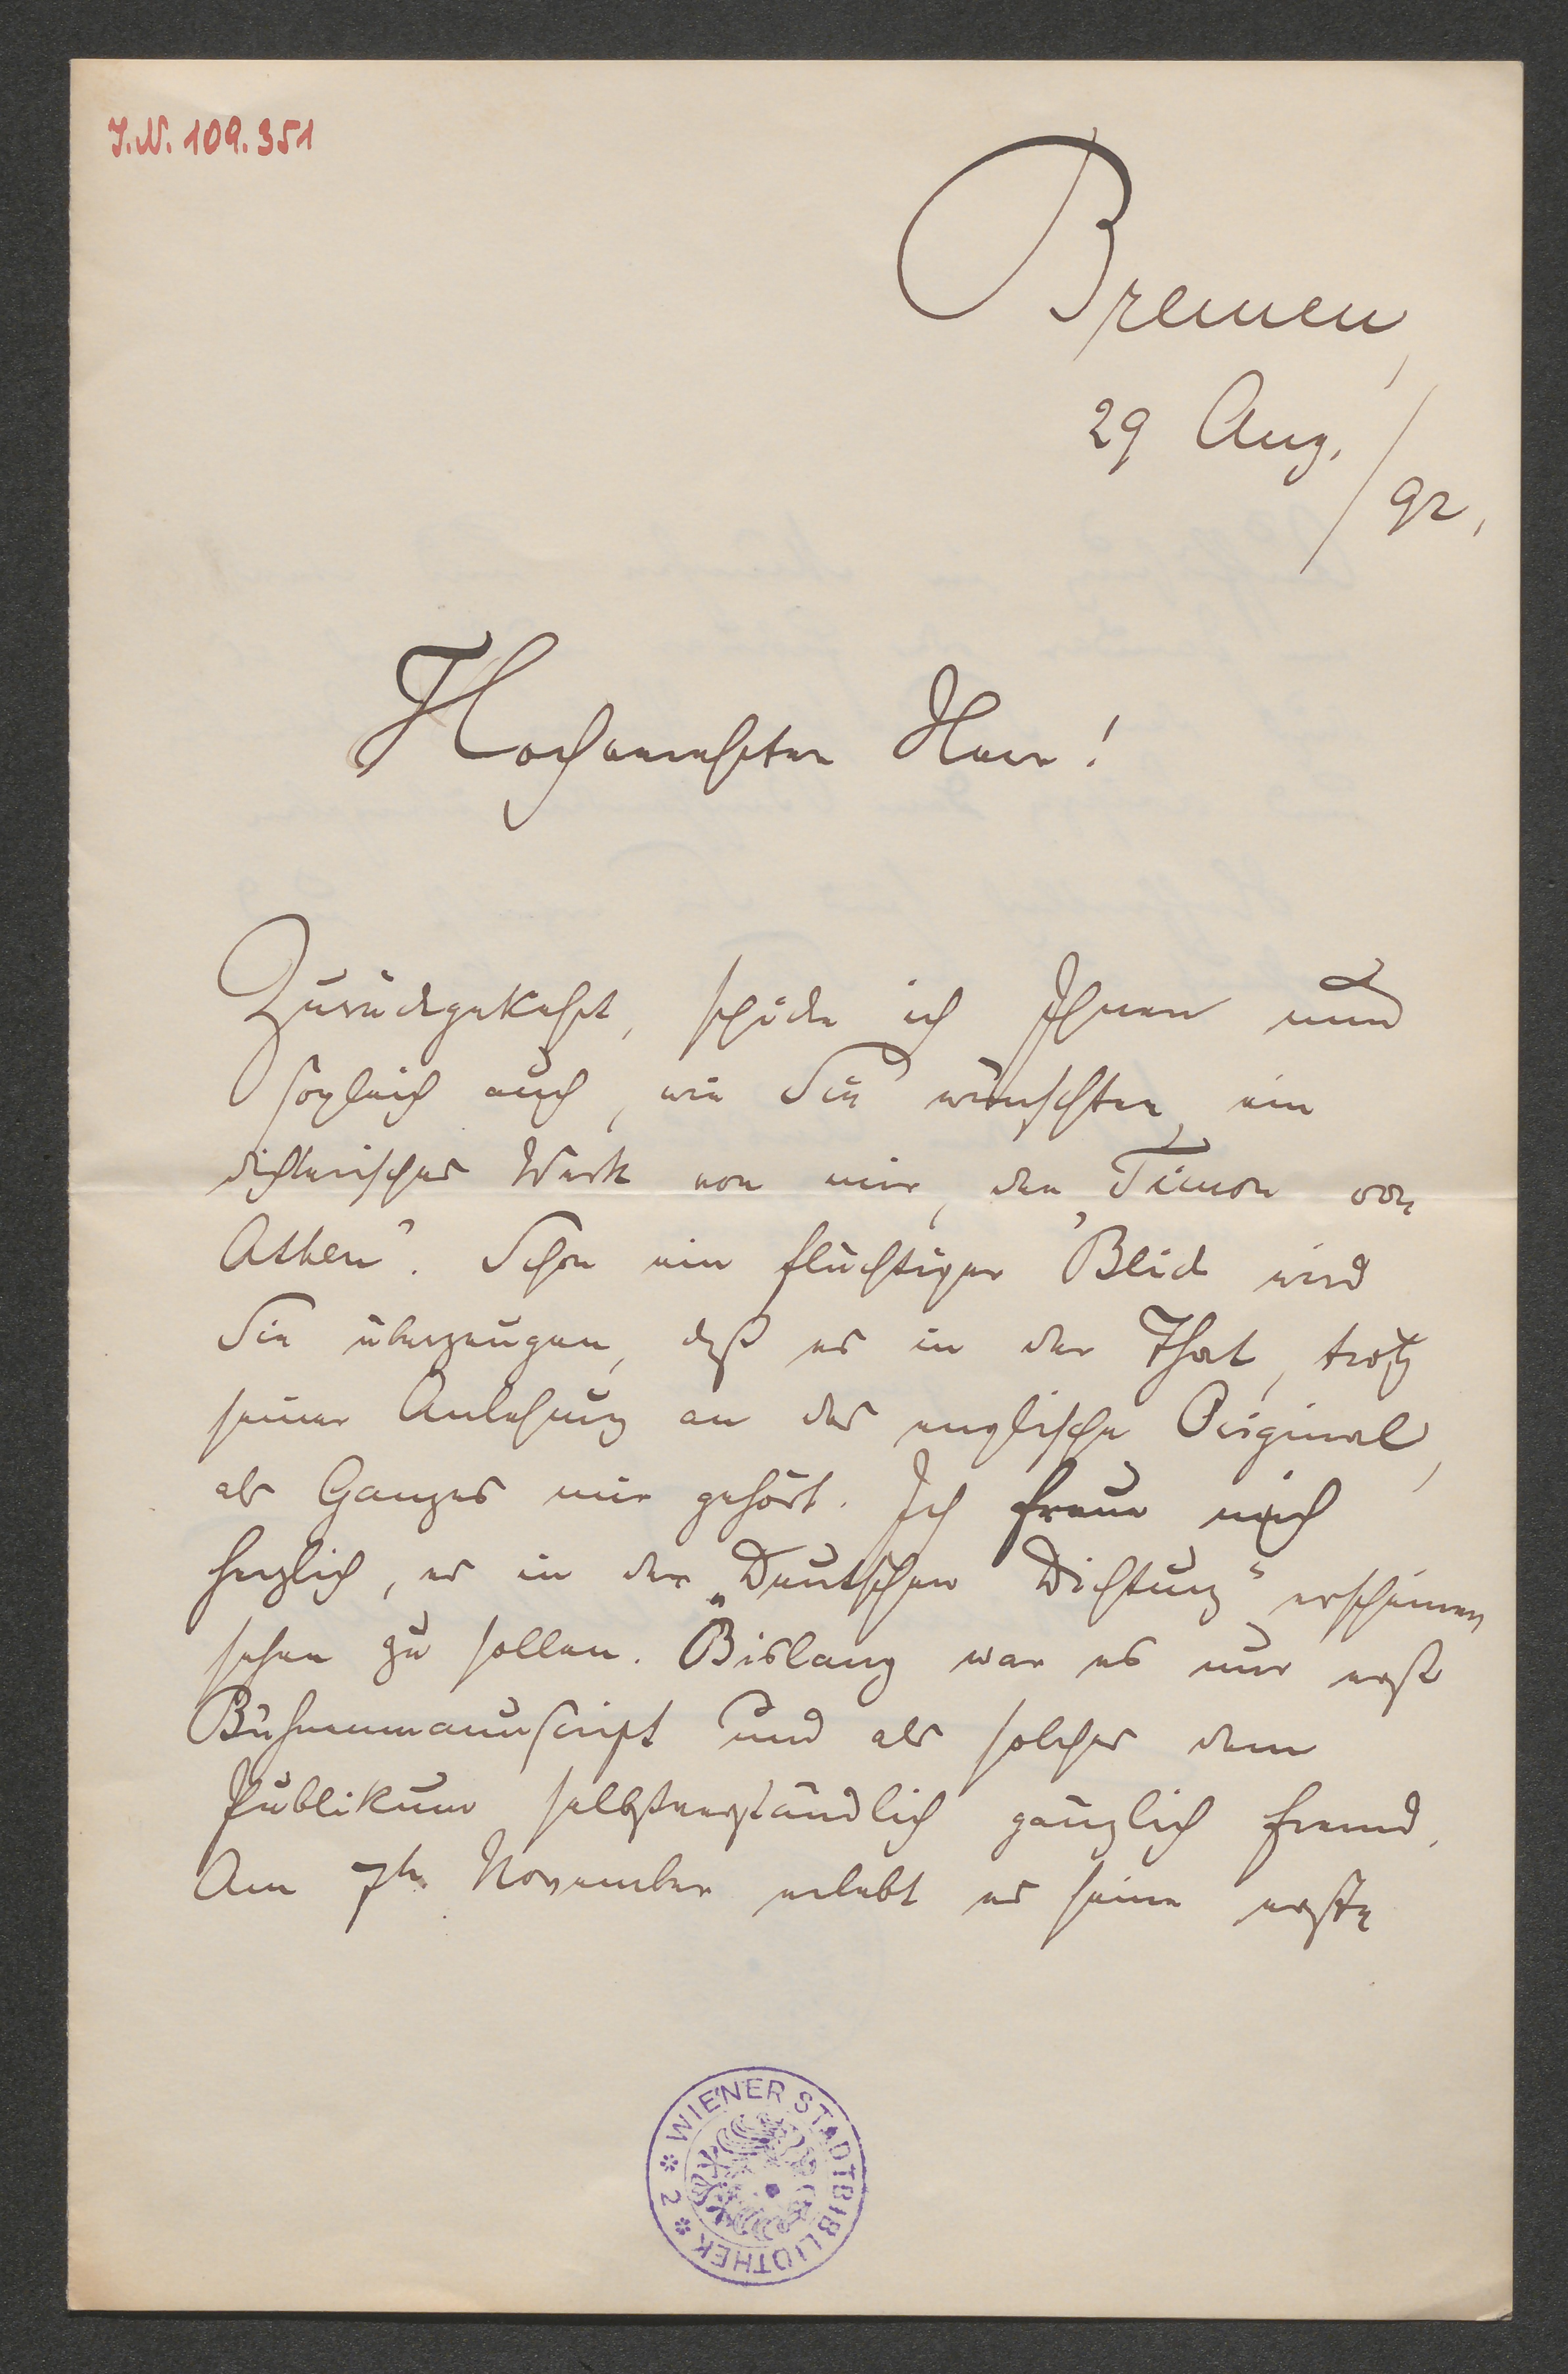 I.N. 109.351
Bremen,
29 Aug. / 92.
Hochverehrter Herr!
Zurückgekehrt, schicke ich Ihnen nun
sogleich auch, wie Sie wünschten, ein
dichterisches Werk von mir, den „Timon von
Athen". Schon ein flüchtiger Blick wird
Sie überzeugen, daß es in der That, trotz
seiner Anlehnung an das englische Original,
als Ganzes mir gehört. Ich freue mich
herzlich, es in der „Deutschen Dichtung" erscheinen
sehen zu sollen. Bislang war es nur erst
Bühnenmanuscript und als solches dem
Publikum selbstverständlich gänzlich fremd.
Am 7th November erlebt es seine erste
WIENER STADTBIBLIOTHEK * 2 *